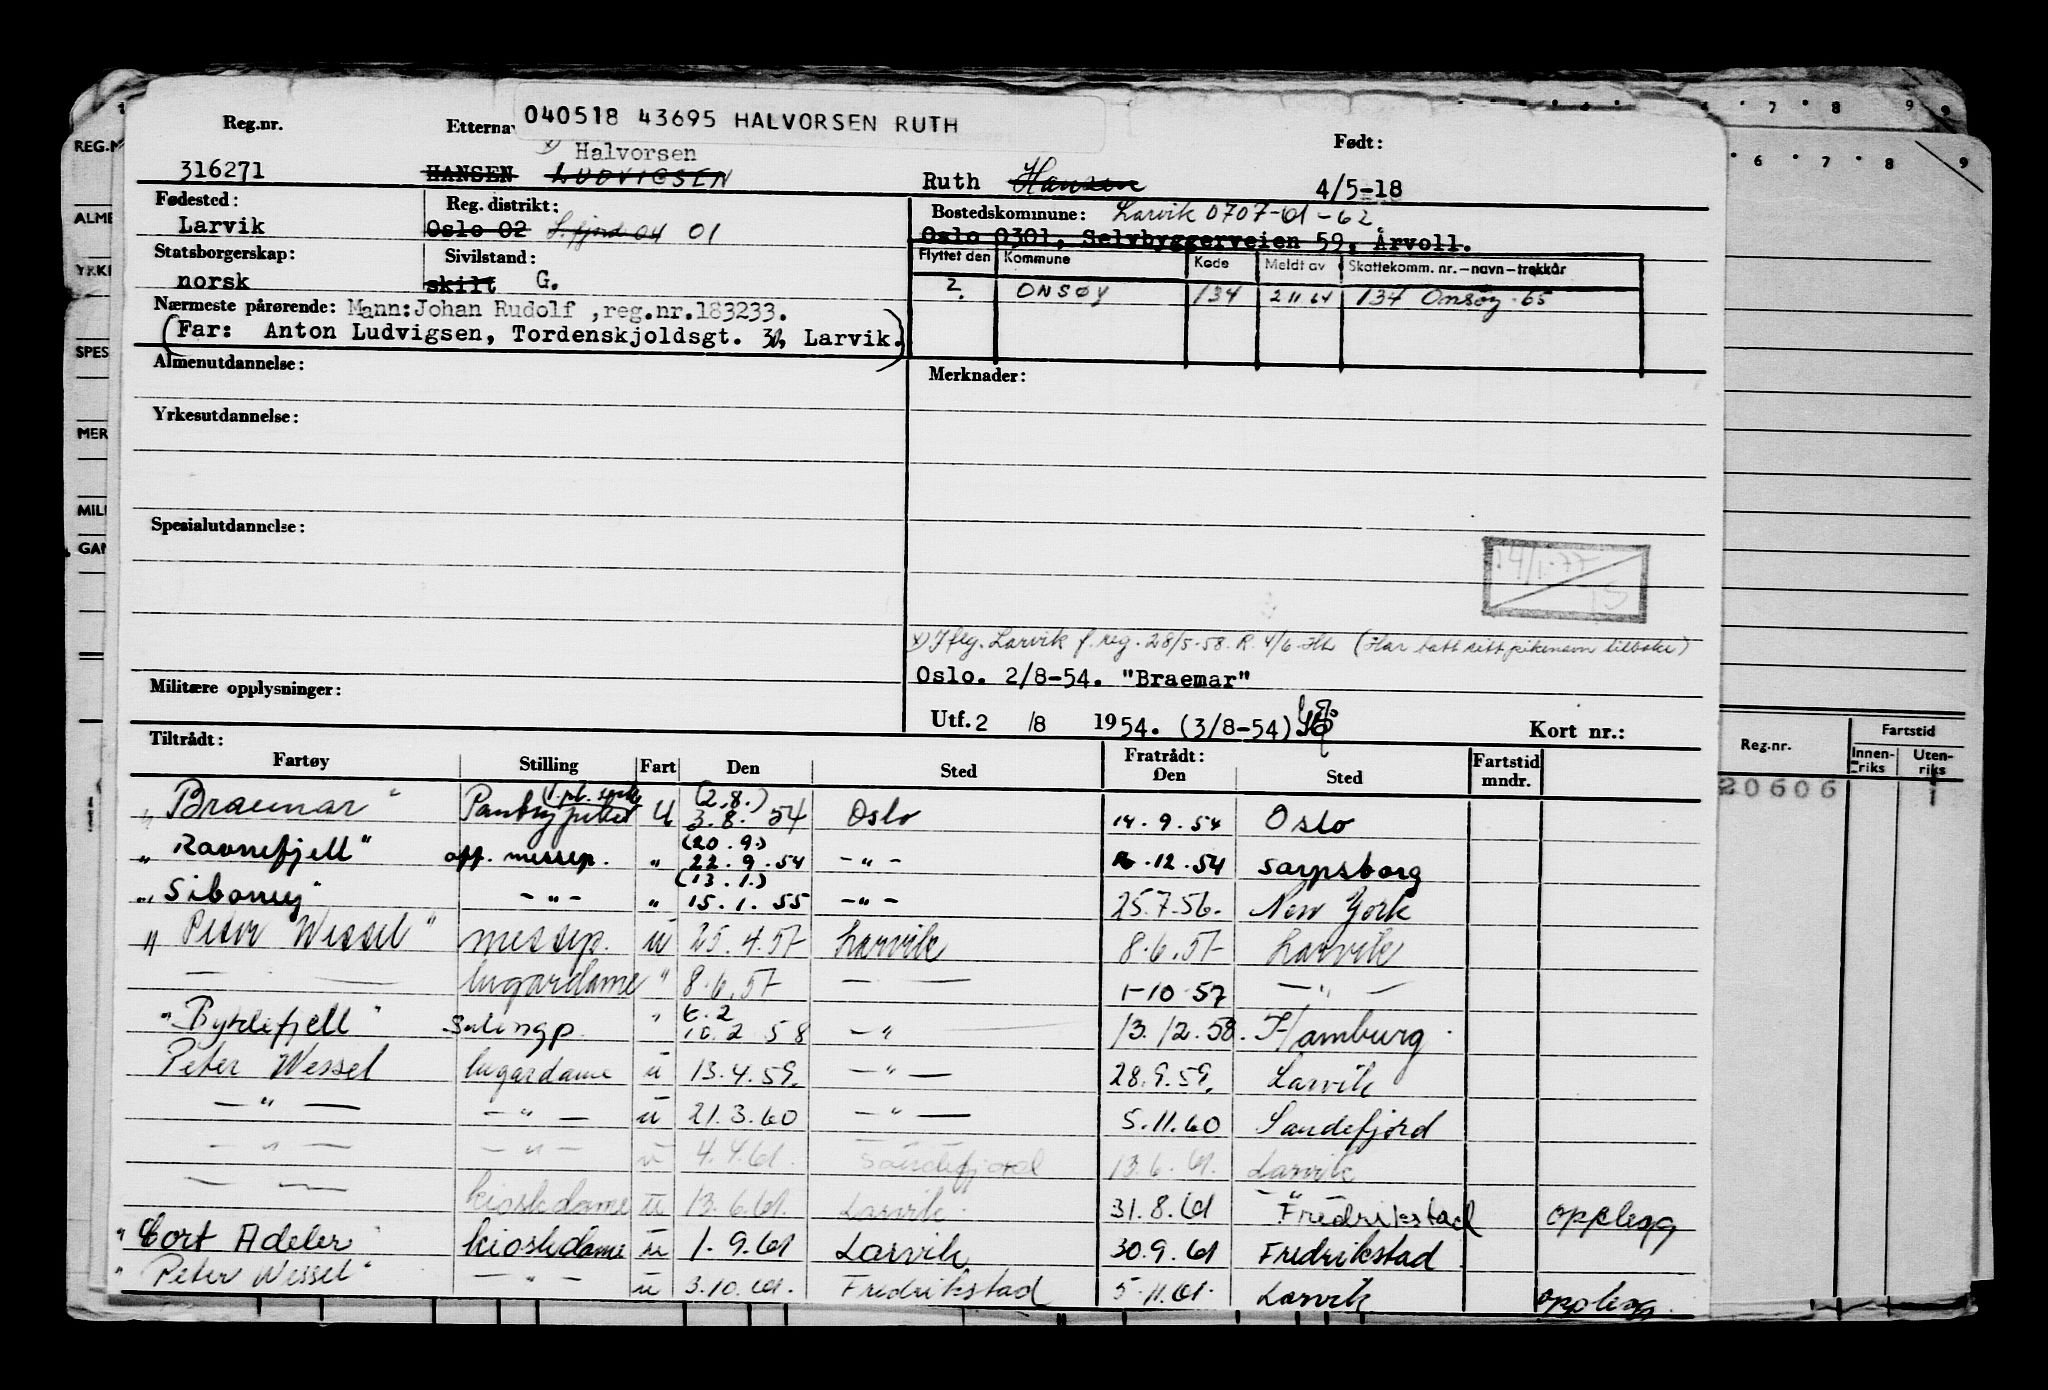 040518 43695 HALVORSEN RUTH
Reg.nr.
Etterna
Født:
x) Halvorsen
316271
HANSEN LUDVIGSEN
Ruth Hansen
4/5-18
Fødested:
Reg. distrikt:
Bostedskommune: Larvik 0707-61-62
Larvik
Oslo 02 S.fjord 04 01
Oslo 0301, Selvbyggerveien 59, Årvoll.
Statsborgerskap:
Sivilstand:
Flyttet den Kommune Kode Meldt av Skattekomm. nr.-navn-trekkår
norsk
skilt G.
2. ONSØY 134 2 11 64 134 Onsøy 65
Nærmeste pårørende: Mann: Johan Rudolf , reg.nr.183233.
(Far: Anton Ludvigsen, Tordenskjoldsgt. 30, Larvik.)
Almenutdannelse:
Merknader:
Yrkesutdannelse:
Spesialutdannelse:
14/1-77
x) Iflg. Larvik f. reg. 28/5-58. R. 4/6. (Har tatt sitt pikenavn tilbake)
Oslo. 2/8-54. "Braemar"
Militære opplysninger:
Utf. 2 /8 1954. (3/8-54)
Kort nr.:
Tiltrådt:
Fratrådt:
Fartøy Stilling Fart Den Sted Den Sted Fartstid mndr.
"Braemar" Pantrypike U (2.8.) 3.8.54 Oslo 14.9.54 Oslo
"Ravnefjell" off. messep. " (20.9.) 22.9.54 -"- .12.54 Sarpsborg
"Siboney" -"- " (13.1.) 15.1.55 -"- 25.7.56. New York
"Peter Wessel" messep. u 25.4.57 Larvik 8.6.57 Larvik
— — lugardame " 8.6.57 — — 1-10-57 -"-
"Byklefjell" Salongp. " 10.2 58 -" 13.12.58. Hamburg
Peter Wessel lugardame u 13.4.59. -"- 28.9.59. Larvik
-"- -"- u 21.3.60 -"- 5.11.60 Sandefjord
-"- -"- u 4.4.61. Sandefjord 13.6.61. Larvik
— — kioskdame u 13.6.61. Larvik 31.8.61 -"- Fredrikstad opplegg
"Cort Adeler" kioskdame u 1.9.61 Larvik 30.9.61 Fredrikstad
"Peter Wessel" -"- u 3.10.61. Fredrikstad 5.11.61. Larvik opplegg.
REG.N
ALME
YRKE
SPES
MER
MILI
GAN
6 7 8 9
7 8 9 9
Reg.nr.
Fartstid
Innen-riks
Uten-riks
20606